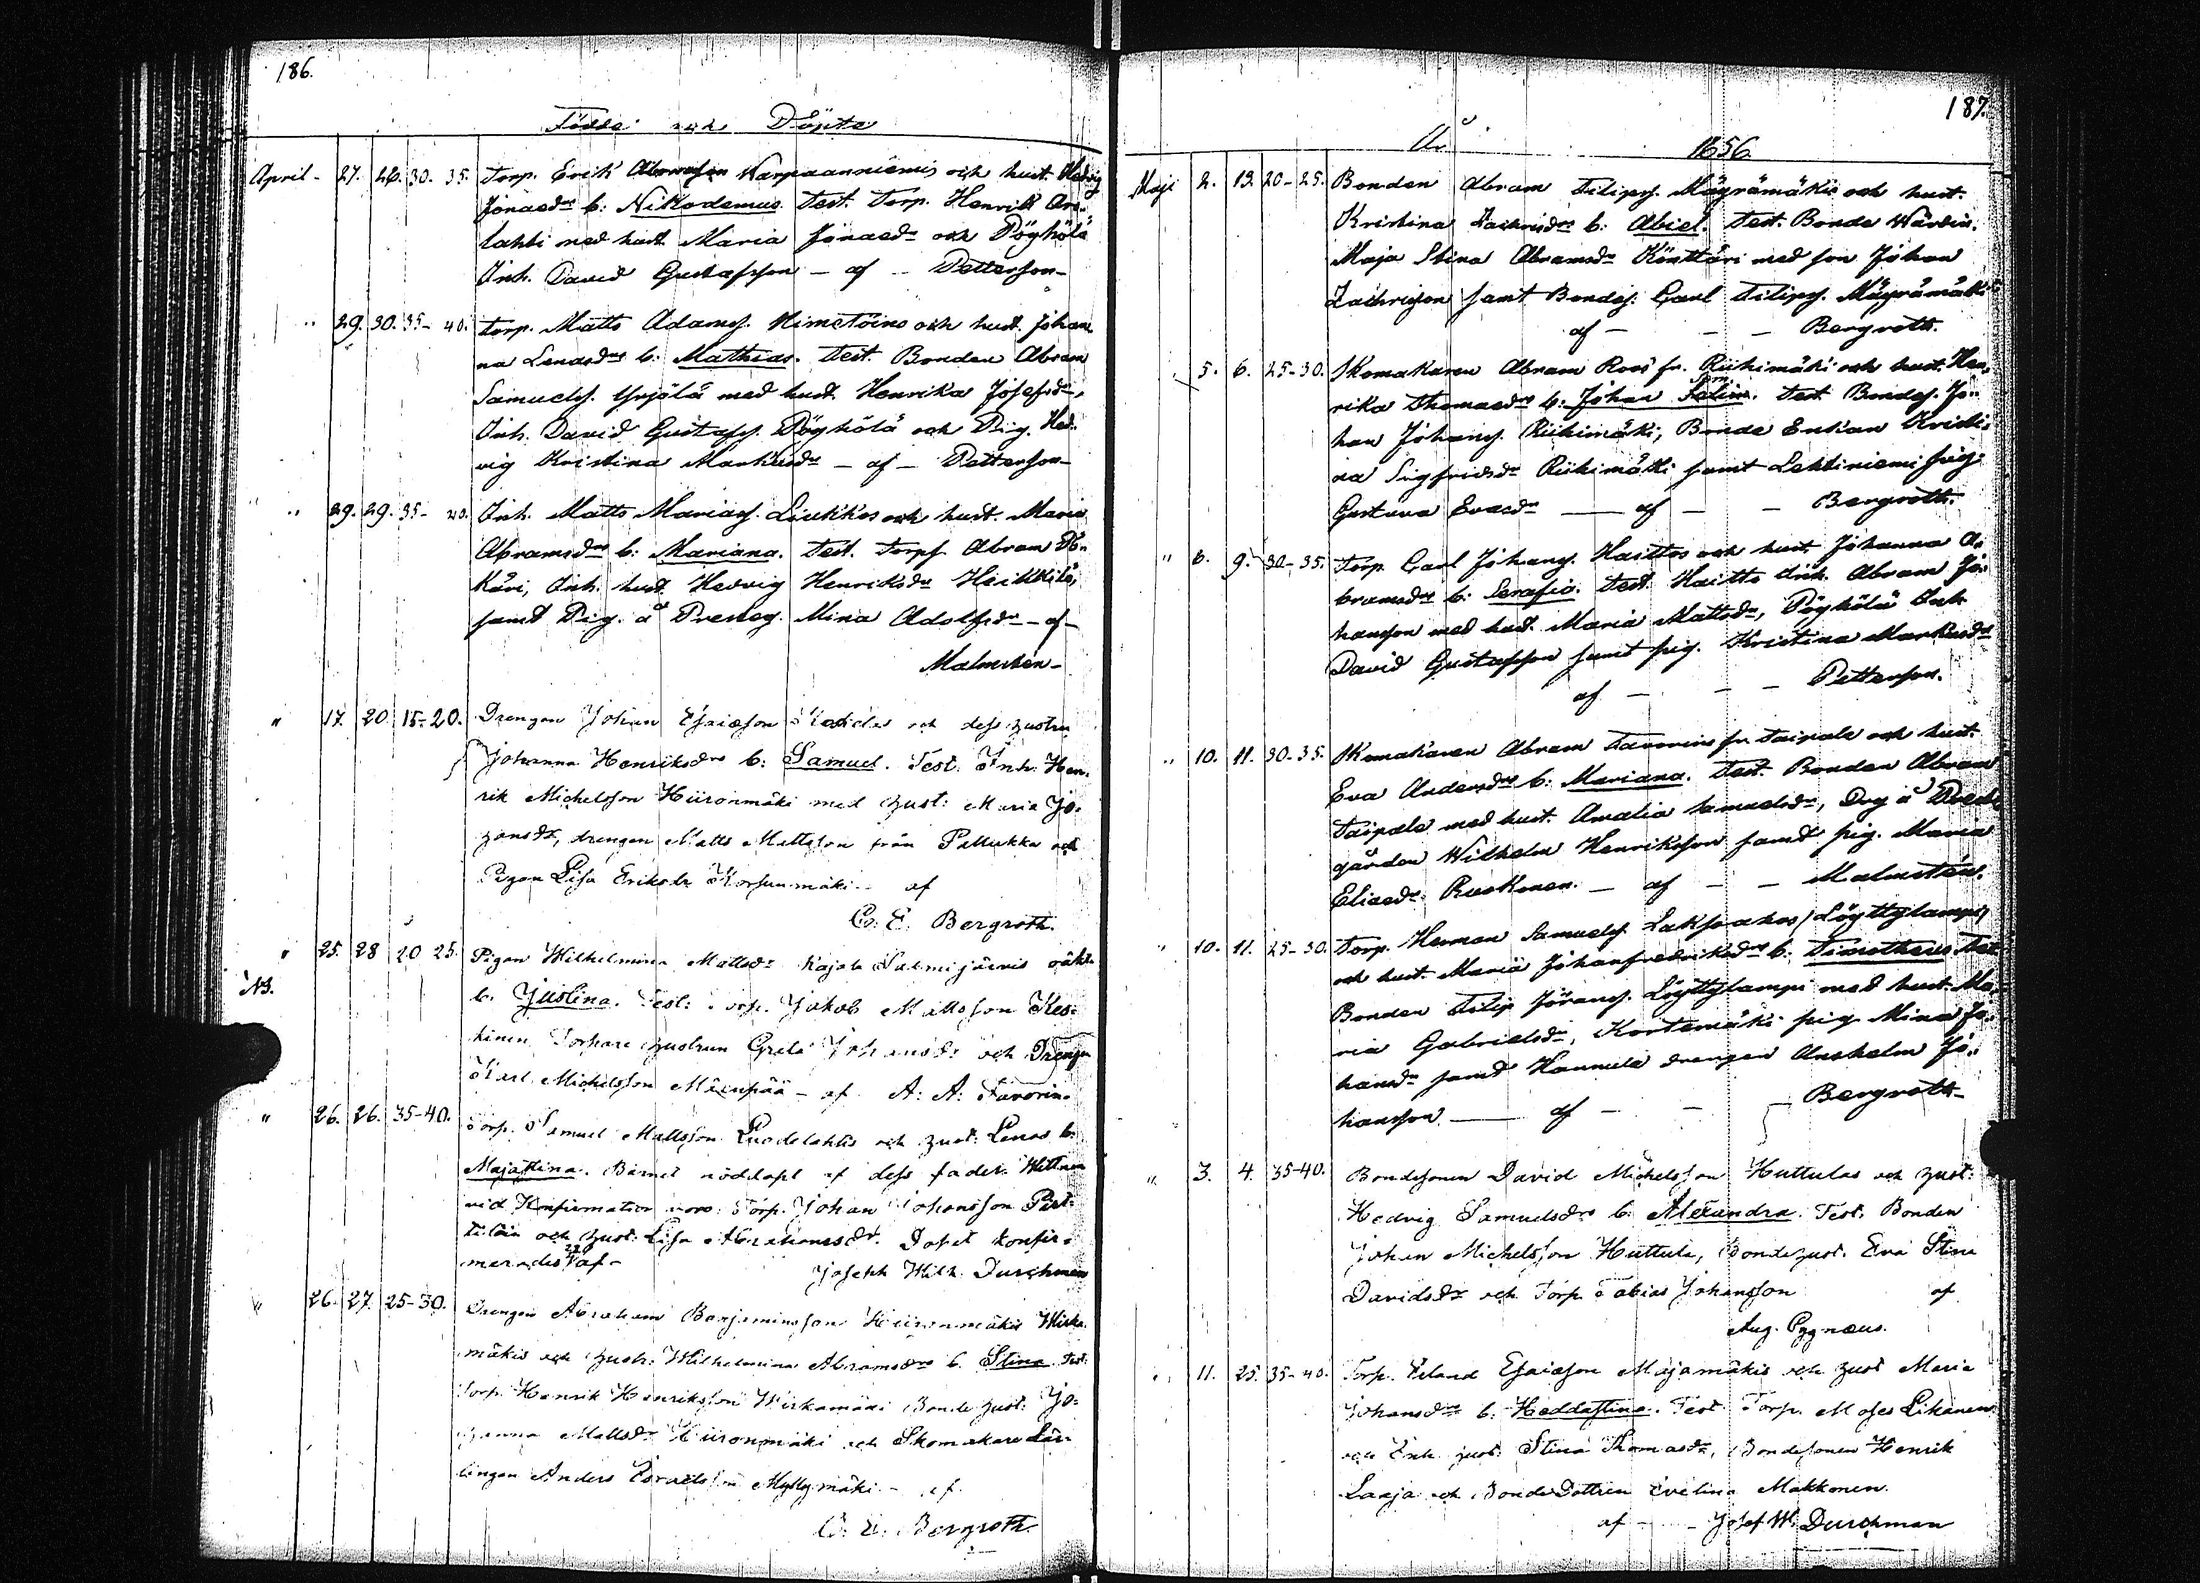 186.
Födde och Döpte
April - 27. 26. 30. 35. Torp. Erik Abramsson Karpaanniemis och hust. Hedvig
Jonasdrs b: Nikodemus. Test. Torp. Henrik
lahti med hust. Maria Jonasdr och Pöyhölä
Inh. David Gustafsson - af - Petterson -
" 29. 30. 35- 40. Torp. Matts Adamss. Nimetöins och hust. Johan
na Lenasdrs b: Mathias. Test. Bonden Abram
Samuelss. Yrjölä med hust. Henrika Josefsdr,
Inh. David Gustafss. Pöyhölä och Pig. Hed-
vig Kristina Markusdr - af - Petterson -
" 29. 29. 35- 40. Inh. Matts Mariass. Liukkos och hust. Maria
Abramsdrs b: Mariana. Test. Torps. Abram
käri, Inh. hust. Hedvig Henriksdr Heikkilä,
samt Pig. å Presteg. Mina Adolfsdr - af -
Malmsten -
" 17. 20. 15-20. Drengen Johan Esaiasson och dess hustru
Johanna Henriksdrs b: Samuel. Test. Inh. Hen-
rik Michelsson Hiironmäki med hust: Maria Jo-
hansdr, drengen Matts Mattsson från Pallukka och
Pigan Lisa Eriksdr Korsunmäki - af
C. E. Bergroth.
" 25. 28 20 25. Pigan Wilhelmina Mattsdr Kajala Salmijärvis oäkta
NB.
b. Justina. Test: Torp. Jakob Mattsson Kes-
kinen Torpare hustrun Greta Johansdr och Drengen
Karl Michelsson Mäenpää - af. A: A: Favorin.
" 26. 26. 35-40. Torp. Samuel Mattsson Luodelahtis och hust: Lenas b.
Majastina. Barnet nöddöpt af dess fader. Wittnen
vid Konfirmation voro: Torp. Johan Johansson Pirt-
tilän och hust: Lisa Abrahamsdr. Dopet konfir-
merades af - Joseph Wilh. Durchman
" 26. 27. 25-30. Drengen Abraham Benjaminsson Hiironmäkis Wirka-
mäkis och hustr. Wilhelmina Abramsdrs b. Stina. Test.
Torp. Henrik Henriksson Wirkamäki Bonde hust: Jo-
hanna Mattsdr Hiironmäki och Skomakare Lär-
lingen Anders Israelsson Myllymäki - af.
C. E. Bergroth.
187.
År 1856.
Maji 2. 13. 20-25. Bonden Abram Filipss. Mäyrämäkis och hust.
Kristina Zachrisdrs b: Abiel. Test. Bonde Wärdin.
Maja Stina Abramsdr Könttäri med son Johan
Zachrisson samt Bondes. Carl Filipss. Mäyrämäki
af - - - Bergroth.
5. 6. 25-30. Skomakaren Abram Roos fr. Riihimäki och hust. Hen-
rika Thomasdrs b: Johan Salim. Test. Bondes. Jo-
han Johanss. Riihimäki, Bonde Enkan Kristi-
na Sigfridsdr Riihimäki samt Lehtiniemi pig.
Gustava Evasdr - af - - Bergroth.
" 6. 9. 30-35. Torp. Carl Johanss. Haittos och hust. Johanna A-
bramsdrs b: Serafia. Test. Haitto Inh. Abram Jo-
hansson med hust. Maria Mattsdr, Pöyhölä Inh.
David Gustafsson samt pig. Kristina Markusdr
af - - - Petterson.
" 10. 11. 30-35. Skomakaren Abram Favorins fr. Taipale och hust.
Eva Andersdrs b: Mariana. Test. Bonden Abram
Taipale med hust. Amalia Samuelsdr, Drg å Prest-
gården Wilhelm Henriksson samt pig. Maria
Eliasdr Ruokonen. - af - - Malmstén.
" 10. 11. 25-30. Torp. Herman Samuelss. Laksoakos / Löyttylampi /
och hust. Maria Johanfredriksdrs b: Timotheus. Test.
Bonden Filip Jöranss. Löyttylampi med hust. Ma-
ria Gabrielsdr, Kortemäki pig. Mina Jo-
hansdr samt Hannula drengen Anshelm Jo-
hansson. - af - - Bergroth -
" 3. 4. 35-40. Bondesonen David Michelsson Huttulas och hust:
Hedvig Samuelsdrs b. Alexandra. Test. Bonden
Johan Michelsson Huttula, Bondehust. Eva Stina
Davidsdr och Torp. Tobias Johansson af
Aug. Pygnæus.
" 11. 25. 35-40. Torp. Eland Esaiasson Majamäkis och hust Maria
Johansdrs b. Heddastina. Test. Torp. Moses Likanen
och Enk. hust: Stina Thomasdr, Bondesonen Henrik
Laaja och Bonde Dottren Evelina Makkonen.
af - - Josef W. Durchman